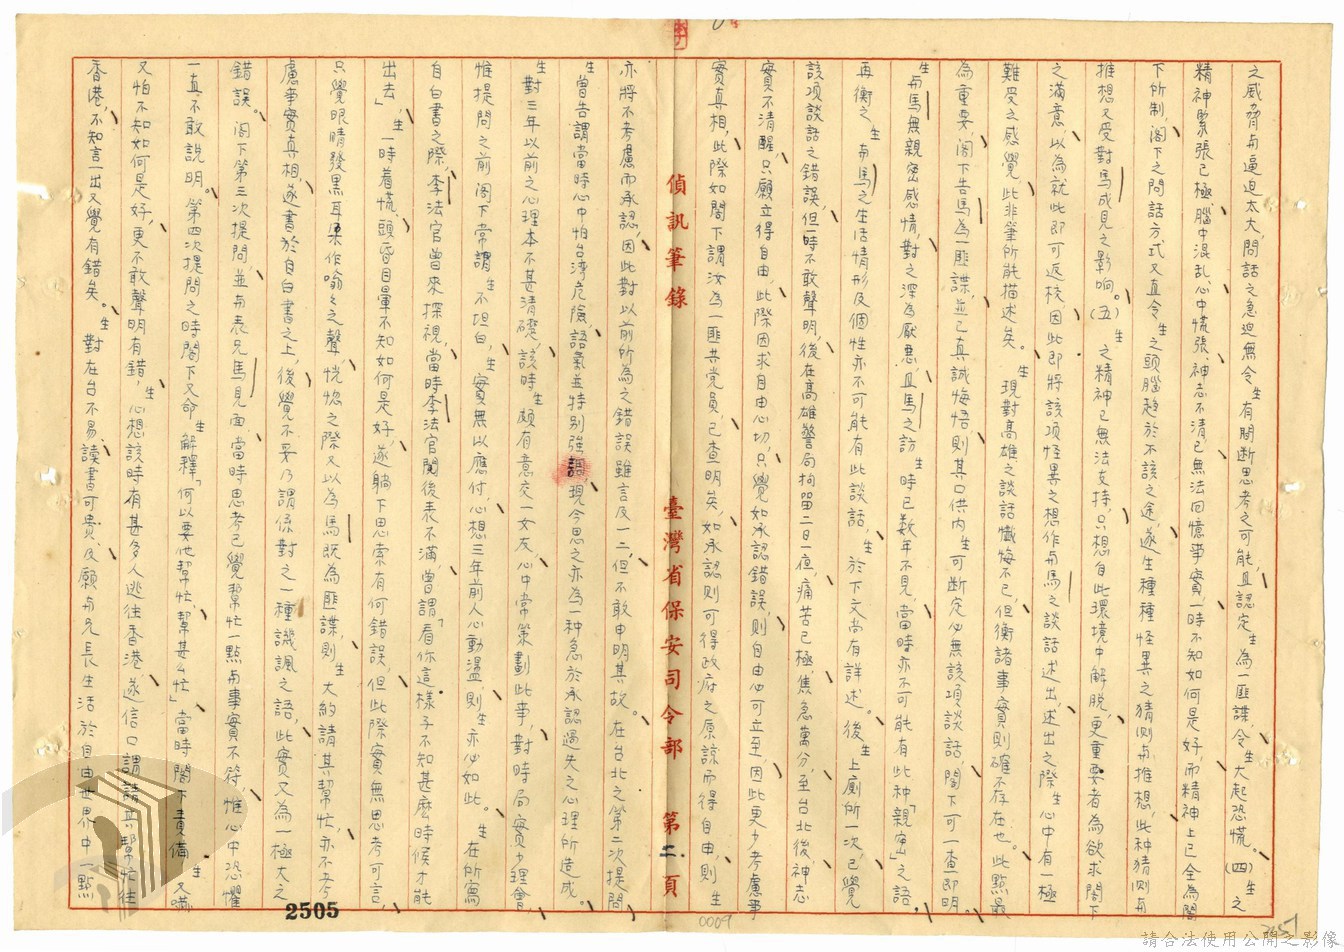 之威脅與逼迫太大,問話之急迫無令生有間斷思考之可能,且認定生為一匪諜,令生大起恐慌。(四)生之
精神緊張已極腦中混亂,心中慌張,神志不清,已無法回憶事實,一時不知如何是好,而精神上已全為閣
下所制,閣下之問話方式又直令生之頭腦趨於不該之途,遂生種種怪異之猜測與推想,此種猜測與
推想又受對馬成見之影响。(五)生之精神已無法支持,只想自此環境中解脫,更重要者為欲求閣下
之滿意,以為就此即可返校,因此即將該項怪異之想作與馬之談話述出,述出之際生心中有一極
難受之感覺,此非筆所能描述矣。生現對高雄之談話懺悔不已,但衡諸事實則確不存在也。此點最
為重要,閣下告馬為一匪諜,並已真誠悔悟,則其口供內生可断定必無該項談話,閣下可一查即明。
生與馬無親密感情,對之深為厭惡,且馬之訪生時已数年不見,當時亦不可能有此种「親密」之語,
再衡之生與馬之生活情形及個性亦不可能有此談話,生於下文尚有詳述。後生上廁所一次,已覺
該項談話之錯誤,但一時不敢聲明,後在高雄警局拘留二日一夜,痛苦已極,焦急萬分,至台北後,神志
實不清醒,只願立得自由,此際因求自由心切,只覺如承認錯誤,則自由必可立至,因此更少考慮事
實真相,此際如閣下謂汝為一匪共党員,已查明矣,如承認則可得政府之原諒而得自由,則生
偵訊筆錄 臺灣省保安司令部 第二頁
亦將不考慮而承認,因此對以前所為之錯誤雖言及一二,但不敢申明其故。在台北之第二次提問
生曾告謂當時心中怕台湾危險,語氣並特別強調,現今思之亦為一种急於承認過失之心理所造成。
生對三年以前之心理本不甚清礎,該時生頗有意交一女友,心中常策劃此事,對時局實少理會,
惟提問之前閣下常謂生不坦白,生實無以應付,心想三年前人心動盪,則生亦必如此。生在所寫
自白書之際,李法官曾來探視,當時李法官閱後表不滿,曾謂「看你這樣子不知甚麽時候才能
出去」,生一時着慌,頭昏目暈不知如何是好,遂躺下思索有何錯誤,但此際實無思考可言,
只覺眼睛發黑耳朵作嗡々之聲,恍惚之際又以為馬既為匪諜,則生大約請其幫忙,亦不考
慮事實真相,遂書於自白書之上,後覺不妥乃謂係對之一種譏諷之語,此實又為一極大之
錯誤。閣下第三次提問並與表兄馬見面,當時思考已覺幫忙一點與事實不符,惟心中恐懼
一真不敢說明。第四次提問之時閣下又命生解釋「何以要他幫忙,幫甚么忙」,當時閣下責備生又嚇
又怕不知如何是好,更不敢聲明有錯,生心想該時有甚多人逃往香港,遂信口謂請其幫忙往
香港,不知言一出又覺有錯矣。生對在台不易,讀書可貴,及願與兄長生活於自由世界中一點
2505
0009
請合法使用公開之影像